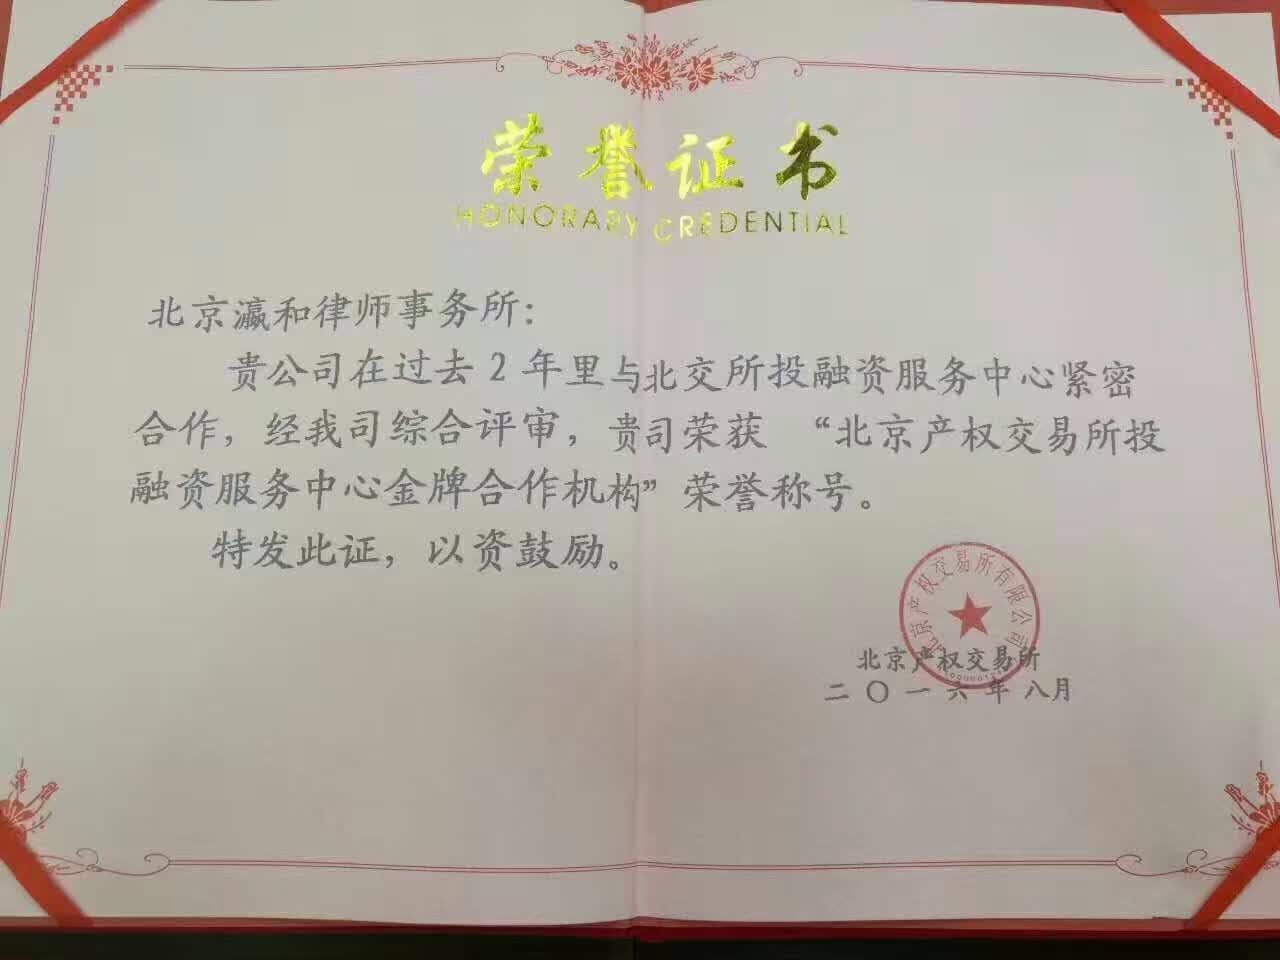 荣誉证书
HONORARY CREDENTIAL
北京瀛和律师事务所：
贵公司在过去2年里与北交所投融资服务中心紧密
合作，经我司综合评审，贵司荣获 “北京产权交易所投
融资服务中心金牌合作机构”荣誉称号。
特发此证，以资鼓励。
北京产权交易所有限公司
北京产权交易所
二〇一六年八月